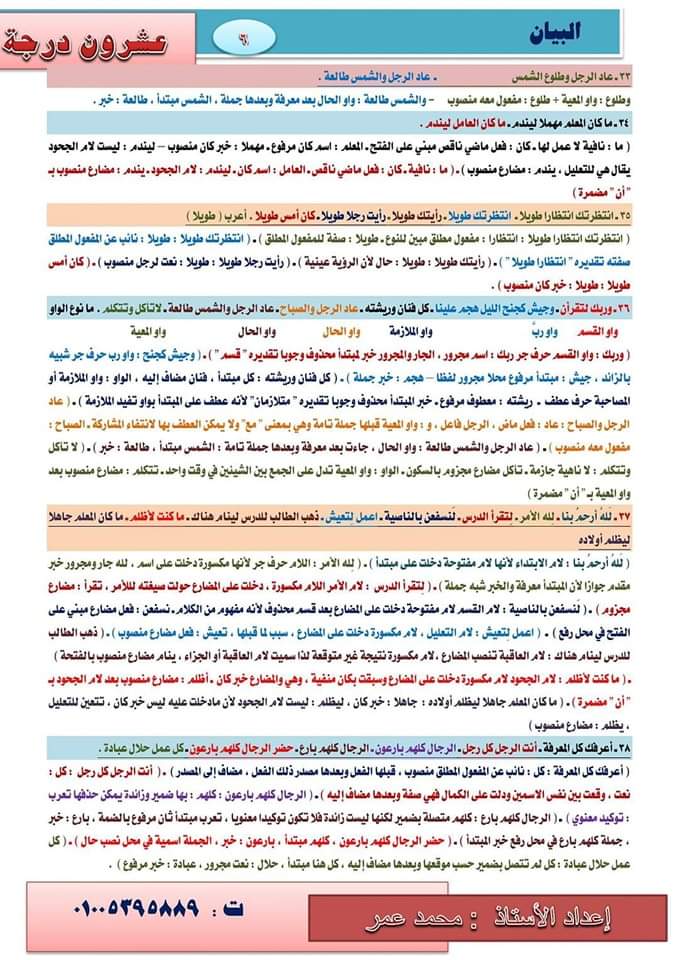 البيان
٦
عشرون درجة
٣٣ ـ عاد الرجل وطلوع الشمس ـ عاد الرجل والشمس طالعة .
وطلوع : واو المعية + طلوع : مفعول معه منصوب – والشمس طالعة : واو الحال بعد معرفة وبعدها جملة ، الشمس مبتدأ ، طالعة : خبر .
٣٤ ـ ما كان المعلم مهملا ليندم ـ ما كان العامل ليندم .
( ما : نافية لا عمل لها ـ كان : فعل ماضي ناقص مبني على الفتح ـ المعلم : اسم كان مرفوع ـ مهملا : خبر كان منصوب – ليندم : ليست لام الجحود
يقال هي للتعليل ، يندم : مضارع منصوب ) ـ ( ما : نافية ـ كان : فعل ماضي ناقص ـ العامل : اسم كان ـ ليندم : لام الجحود ـ يندم : مضارع منصوب بـ
" أن " مضمرة )
٣٥ ـ انتظرتك انتظارا طويلا ـ انتظرتك طويلا ـ رأيتك طويلا ـ رأيت رجلا طويلا ـ كان أمس طويلا . أعرب ( طويلا )
( انتظرتك انتظارا طويلا : انتظارا : مفعول مطلق مبين للنوع ـ طويلا : صفة للمفعول المطلق ) ـ ( انتظرتك طويلا : طويلا : نائب عن المفعول المطلق
صفته تقديره " انتظارا طويلا " ) ـ ( رأيتك طويلا : طويلا : حال لأن الرؤية عينية ) ـ ( رأيت رجلا طويلا : طويلا : نعت لرجل منصوب ) ـ ( كان أمس
طويلا : طويلا : خبر كان منصوب ) .
٣٦ ـ وربك لتقرأن ـ وجيش كجنح الليل هجم علينا ـ كل فنان وريشته ـ عاد الرجل والصباح ـ عاد الرجل والشمس طالعة ـ لاتأكل وتتكلم . ما نوع الواو
واو القسم واو ربَّ واو الملازمة واو الحال واو الحال واو المعية
( وربك : واو القسم حرف جر ربك : اسم مجرور ، الجار والمجرور خبر لمبتدأ محذوف وجوبا تقديره " قسم " ) ـ ( وجيش كجنح : واو رب حرف جر شبيه
بالزائد ، جيش : مبتدأ مرفوع محلا مجرور لفظا – هجم : خبر جملة ) ـ ( كل فنان وريشته : كل مبتدأ ، فنان مضاف إليه ، الواو : واو الملازمة أو
المصاحبة حرف عطف ـ ريشته : معطوف مرفوع ـ خبر المبتدأ محذوف وجوبا تقديره " متلازمان" لأنه عطف على المبتدأ بواو تفيد الملازمة ) ـ ( عاد
الرجل والصباح : عاد : فعل ماض ، الرجل فاعل ، و : واو المعية قبلها جملة تامة وهي بمعنى " مع" ولا يمكن العطف بها لانتفاء المشاركة ـ الصباح :
مفعول معه منصوب ) ـ ( عاد الرجل والشمس طالعة : واو الحال ، جاءت بعد معرفة وبعدها جملة تامة : الشمس مبتدأ ، طالعة : خبر ) ـ ( لا تأكل
وتتكلم : لا ناهية جازمة ـ تأكل مضارع مجزوم بالسكون ـ الواو : واو المعية تدل على الجمع بين الشيئين في وقت واحد ـ تتكلم : مضارع منصوب بعد
واو المعية بـ " أن " مضمرة )
٣٧ ـ لَلهُ أرحمُ بنا ـ لِله الأمر ـ لِتقرأ الدرس ـ لَنسفعن بالناصية ـ اعمل لِتعيش ـ ذهب الطالب للدرس لينام هناك ـ ما كنت لأظلم ـ ما كان المعلم جاهلا
ليظلم أولاده
( لَلهُ أرحمُ بنا : لام الابتداء لأنها لام مفتوحة دخلت على مبتدأ ) ـ ( لِله الأمر : اللام حرف جر لأنها مكسورة دخلت على اسم ، لله جار ومجرور خبر
مقدم جوازا لأن المبتدأ معرفة والخبر شبه جملة ) ـ ( لِتقرأ الدرس : لام الأمر اللام مكسورة ، دخلت على المضارع حولت صيغته للأمر ، تقرأ : مضارع
مجزوم ) ـ ( لَنسفعن بالناصية : لام القسم لام مفتوحة دخلت على المضارع بعد قسم محذوف لأنه مفهوم من الكلام ـ نسفعن : فعل مضارع مبني على
الفتح في محل رفع ) ـ ( اعمل لِتعيش : لام التعليل ، لام مكسورة دخلت على المضارع ، سبب لما قبلها ، تعيش : فعل مضارع منصوب ) ـ ( ذهب الطالب
للدرس لينام هناك : لام العاقبة تنصب المضارع ، لام مكسورة نتيجة غير متوقعة لذا سميت لام العاقبة أو الجزاء ، ينام مضارع منصوب بالفتحة )
ـ ( ما كنت لأظلم : لام الجحود لام مكسورة دخلت على المضارع وسبقت بكان منفية ، وهي والمضارع خبر كان ـ أظلم : مضارع منصوب بعد لام الجحود بـ
" أن " مضمرة ) ـ ( ما كان المعلم جاهلا ليظلم أولاده : جاهلا : خبر كان ، ليظلم : ليست لام الجحود لأن مادخلت عليه ليس خبر كان ، تتعين للتعليل
، يظلم : مضارع منصوب )
٣٨ ـ أعرفك كل المعرفة ـ أنت الرجل كل رجل ـ الرجال كلهم بارعون ـ الرجال كلهم بارع ـ حضر الرجال كلهم بارعون ـ كل عمل حلال عبادة .
( أعرفك كل المعرفة : كل : نائب عن المفعول المطلق منصوب ، قبلها الفعل وبعدها مصدر ذلك الفعل ، مضاف إلى المصدر ) ـ ( أنت الرجل كل رجل : كل :
نعت ، وقعت بين نفس الاسمين ودلت على الكمال فهي صفة وبعدها مضاف إليه ) ـ ( الرجال كلهم بارعون : كلهم : بها ضمير وزائدة يمكن حذفها تعرب
: توكيد معنوي ) ـ ( الرجال كلهم بارع : كلهم متصلة بضمير لكنها ليست زائدة فلا تكون توكيدا معنويا ، تعرب مبتدأ ثان مرفوع بالضمة ، بارع : خبر
، جملة كلهم بارع في محل رفع خبر المبتدأ ) ـ ( حضر الرجال كلهم بارعون ، كلهم مبتدأ ، بارعون : خبر ، الجملة اسمية في محل نصب حال ) ـ ( كل
عمل حلال عبادة : كل لم تتصل بضمير حسب موقعها وبعدها مضاف إليه ، كل هنا مبتدأ ، حلال : نعت مجرور ، عبادة : خبر مرفوع ) .
إعداد الأستاذ : محمد عمر
ت : ٠١٠٠٥٣٩٥٨٨٩